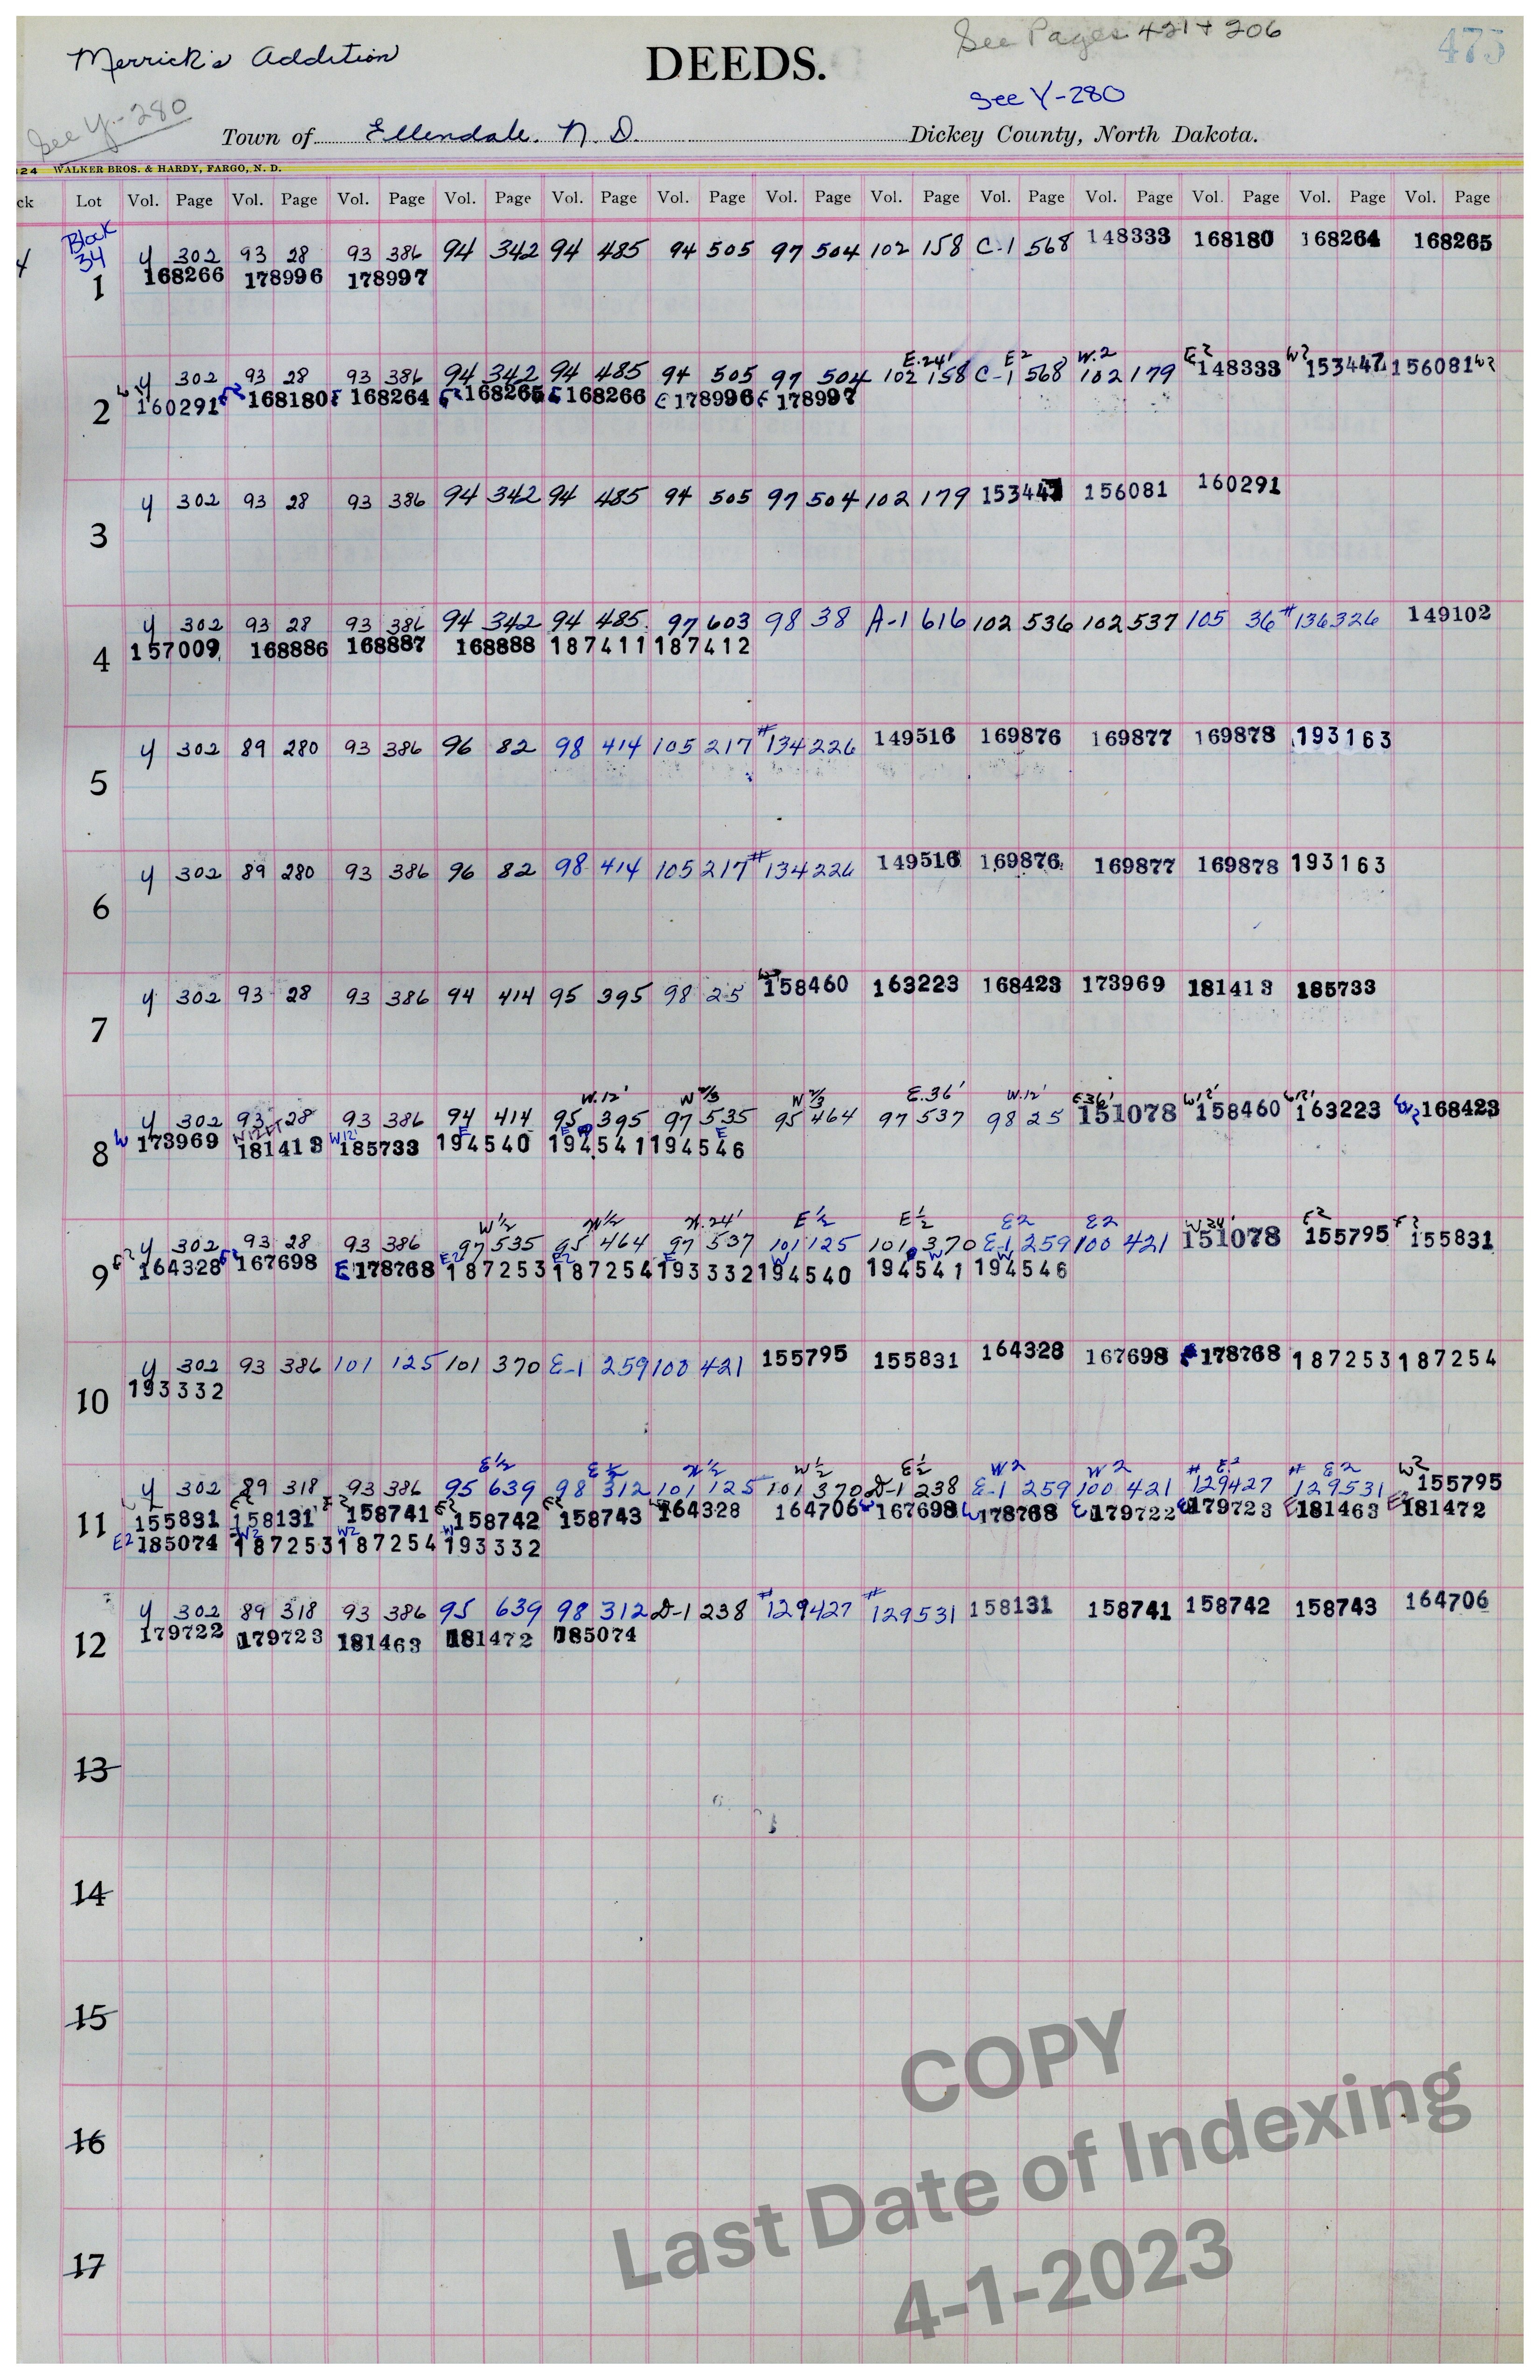 See Pages 421 + 206
475
Merrick's Addition
DEEDS.
See Y-280
See Y-280
Town of Ellendale. N. D. Dickey County, North Dakota.
24 WALKER BROS. & HARDY, FARGO, N. D.
ck Lot Vol. Page Vol. Page Vol. Page Vol. Page Vol. Page Vol. Page Vol. Page Vol. Page Vol. Page Vol. Page Vol. Page Vol. Page Vol. Page
Block
34
4 302 93 28 93 386 94 342 94 485 94 505 97 504 102 158 C-1 568 148333 168180 168264 168265
1 168266 178996 178997
E.24' E2 W.2 E2 W2
y 302 93 28 93 386 94 342 94 485 94 505 97 504 102 158 C-1 568 102 179 148333 153447 156081 W2
2 160291 E2 168180 E 168264 E2 168265 E 168266 E 178996 E 178997
y 302 93 28 93 386 94 342 94 485 94 505 97 504 102 179 153447 156081 160291
3
y 302 93 28 93 386 94 342 94 485 97 603 98 38 A-1 616 102 536 102 537 105 36 #136326 149102
4 157009 168886 168887 168888 187411 187412
y 302 89 280 93 386 96 82 98 414 105 217 #134226 149516 169876 169877 169878 193163
5
y 302 89 280 93 386 96 82 98 414 105 217 #134226 149516 169876 169877 169878 193163
6
y 302 93 28 93 386 94 414 95 395 98 25 158460 163223 168423 173969 181413 185733
7
W.12' W 2/3 W 2/3 E.36' W.12' E.36' W12' W12'
y 302 93 28 93 386 94 414 95 395 97 535 95 464 97 537 98 25 151078 158460 163223 W2 168423
W W12FT W12' E E E
8 173969 181413 185733 194540 194541 194546
W½ W½ W.24' E½ E½ E2 E2 W24' E2 E2
y 302 93 28 93 386 97 535 95 464 97 537 101 125 101 370 E-1 259 100 421 151078 155795 155831
E2 E2 E E2 E2 E W W W
9 164328 167698 178768 187253 187254 193332 194540 194541 194546
y 302 93 386 101 125 101 370 E-1 259 100 421 155795 155831 164328 167698 178768 187253 187254
10 193332
E½ E½ W½ W½ E½ W2 W2 # E2 # E2 W2
y 302 89 318 93 386 95 639 98 312 101 125 101 370 D-1 238 E-1 259 100 421 129427 129531 155795
11 155831 158131 158741 158742 158743 164328 164706 167698 178768 179722 179723 181463 181472
E2 185074 W2 187253 W2 187254 W 193332
y 302 89 318 93 386 95 639 98 312 D-1 238 #129427 #129531 158131 158741 158742 158743 164706
12 179722 179723 181463 181472 185074
13
14
15
16
17
COPY
Last Date of Indexing
4-1-2023